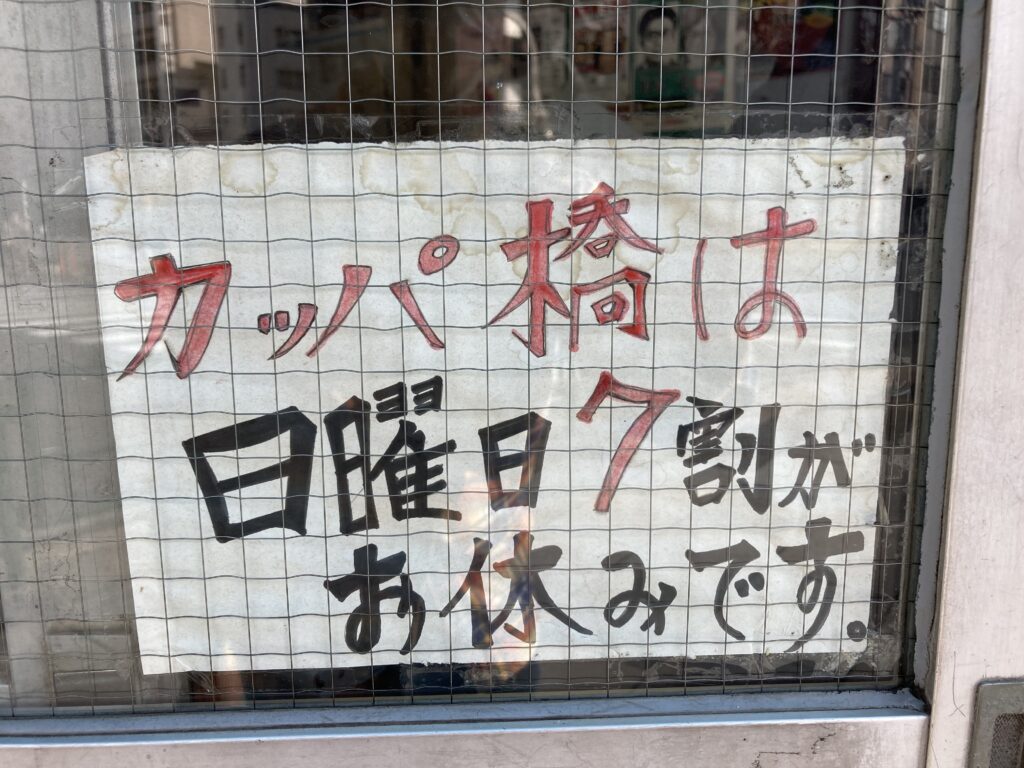 カッパ橋は
日曜日7割が
お休みです。